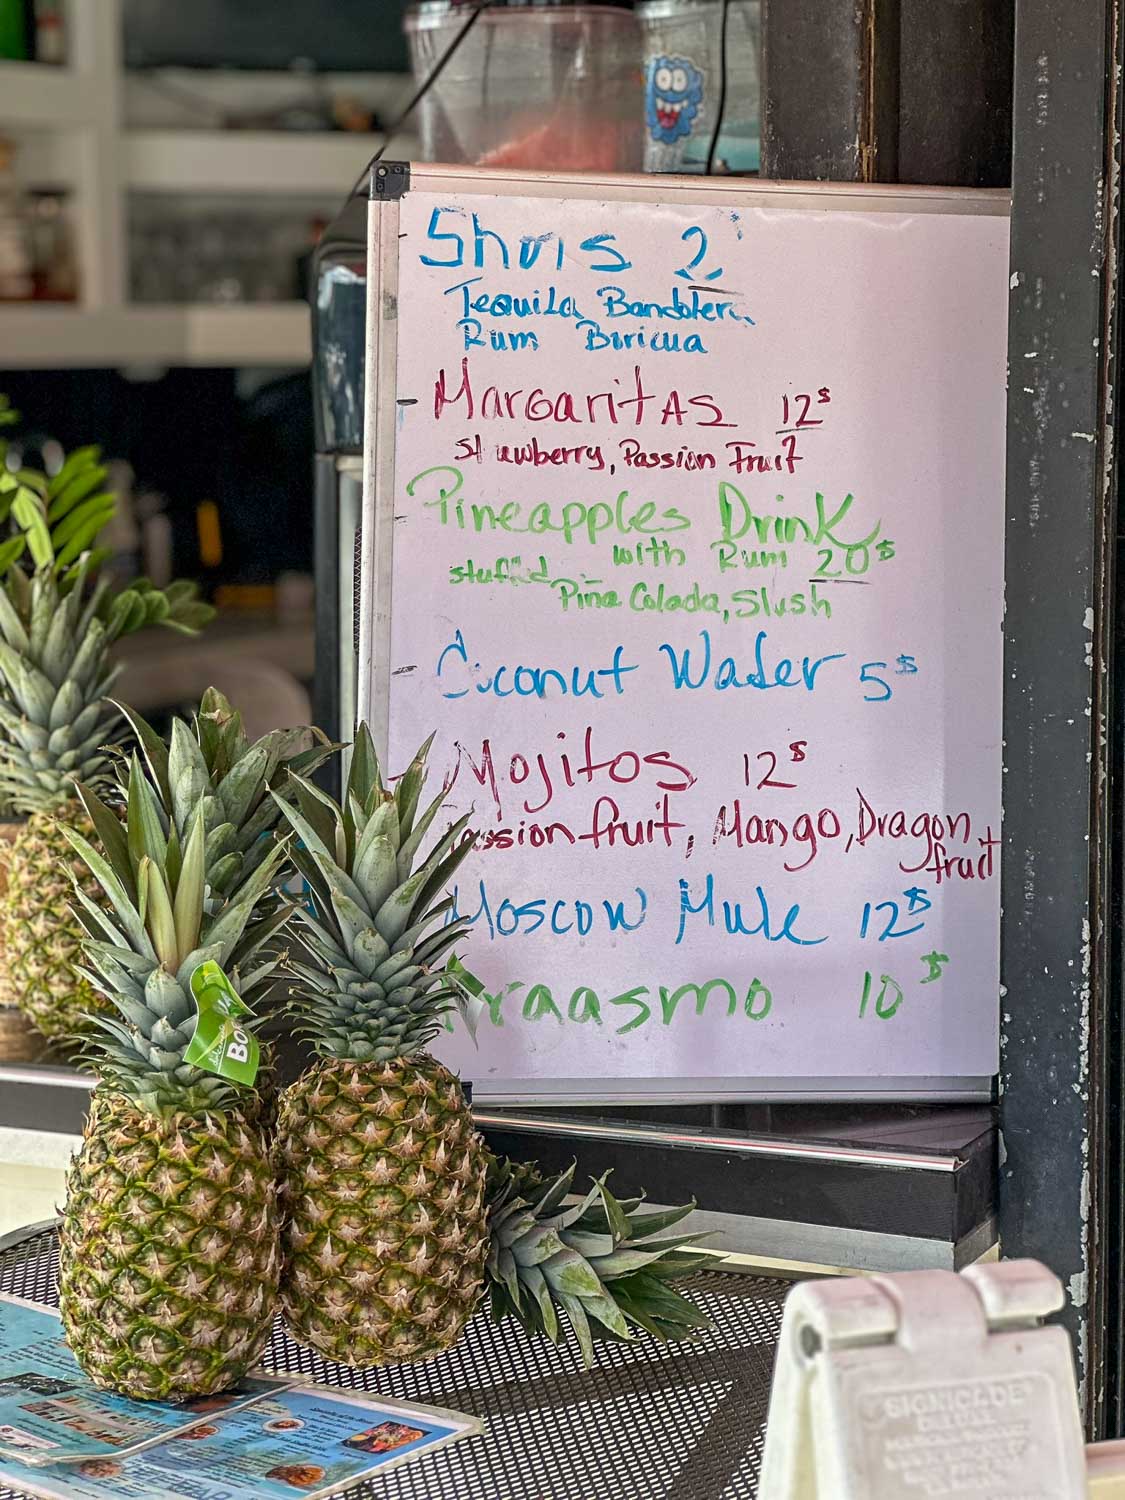 Shots 2
Tequila Bandolera
Rum Boricua
- Margaritas 12$
Strawberry, Passion Fruit
Pineapples Drink
stuffed with Rum 20$
Piña Colada, Slush
- Coconut Water 5$
- Mojitos 12$
Passion fruit, Mango, Dragon
fruit
Moscow Mule 12$
10$
BO
SIGNICADE
DELUXE